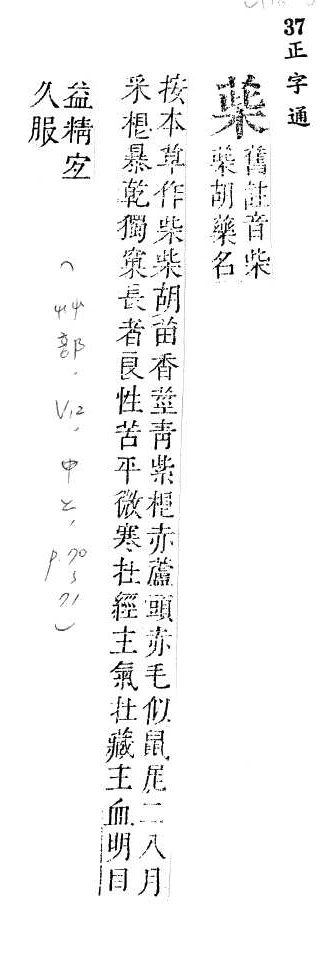 37 正字通
舊註音柴
胡藥名
按本草作柴柴胡苗香莖青紫根赤蘆頭赤毛似鼠尾二八月
采根暴乾獨窠長者良性苦平微寒在經主氣在藏主血明目
益精宐
久服
(艸部. V.12, 申上, p.70~71)